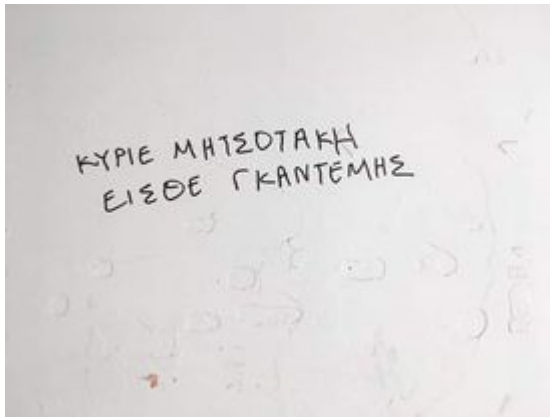 ΚΥΡΙΕ ΜΗΤΣΟΤΑΚΗ
ΕΙΣΘΕ ΓΚΑΝΤΕΜΗΣ